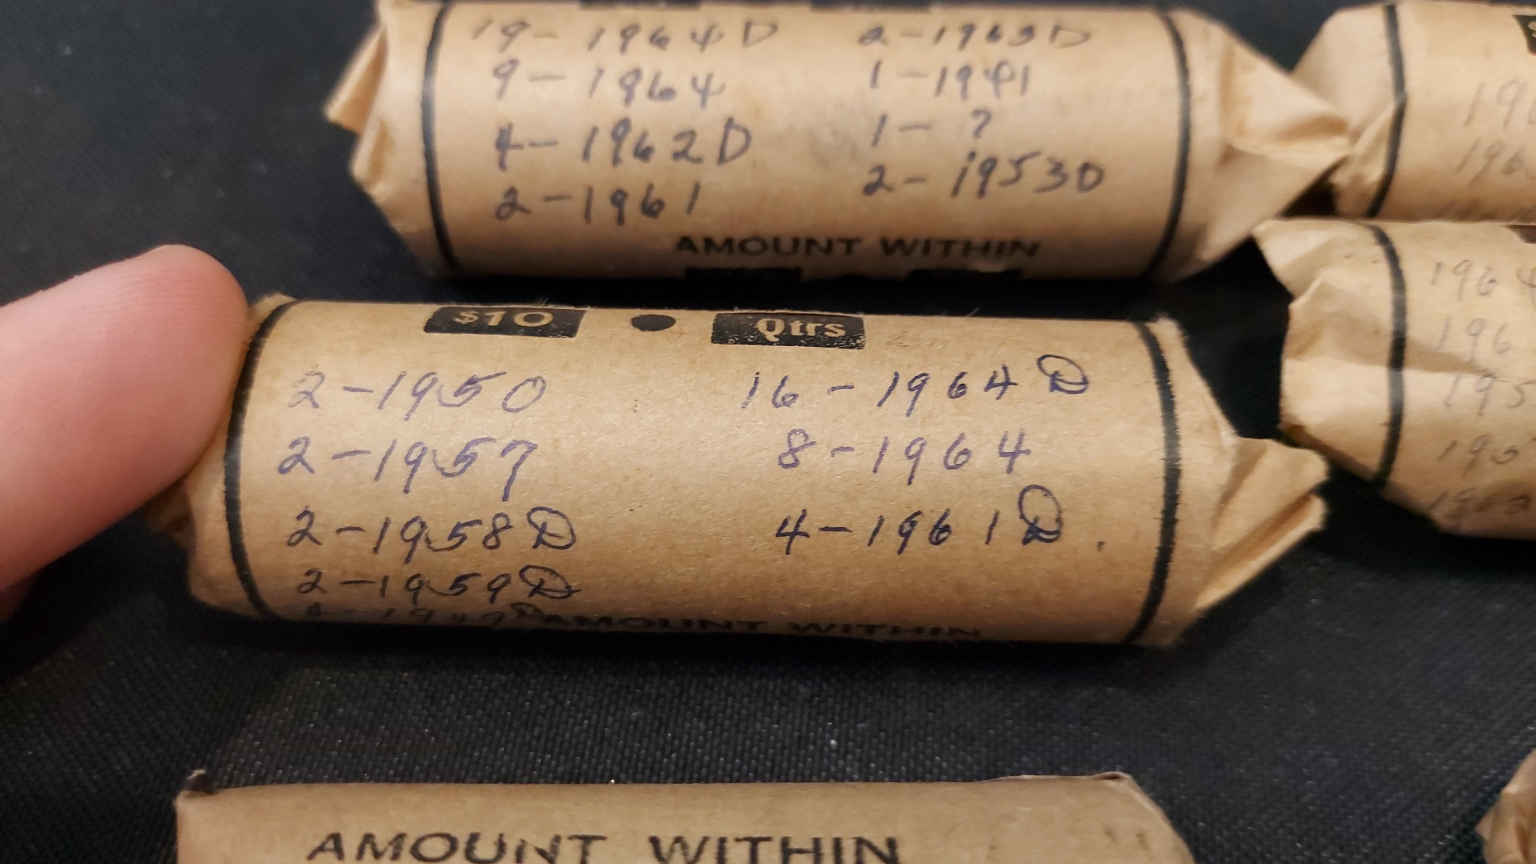 19-1964D 2-1963D
9-1964 1-1941
4-1962D 1-?
2-1961 2-1953D
AMOUNT WITHIN
$10 Qtrs
2-1950 16-1964D
2-1957 8-1964
2-1958D 4-1961D.
2-1959D
AMOUNT WITHIN
196
196
195
AMOUNT WITHIN